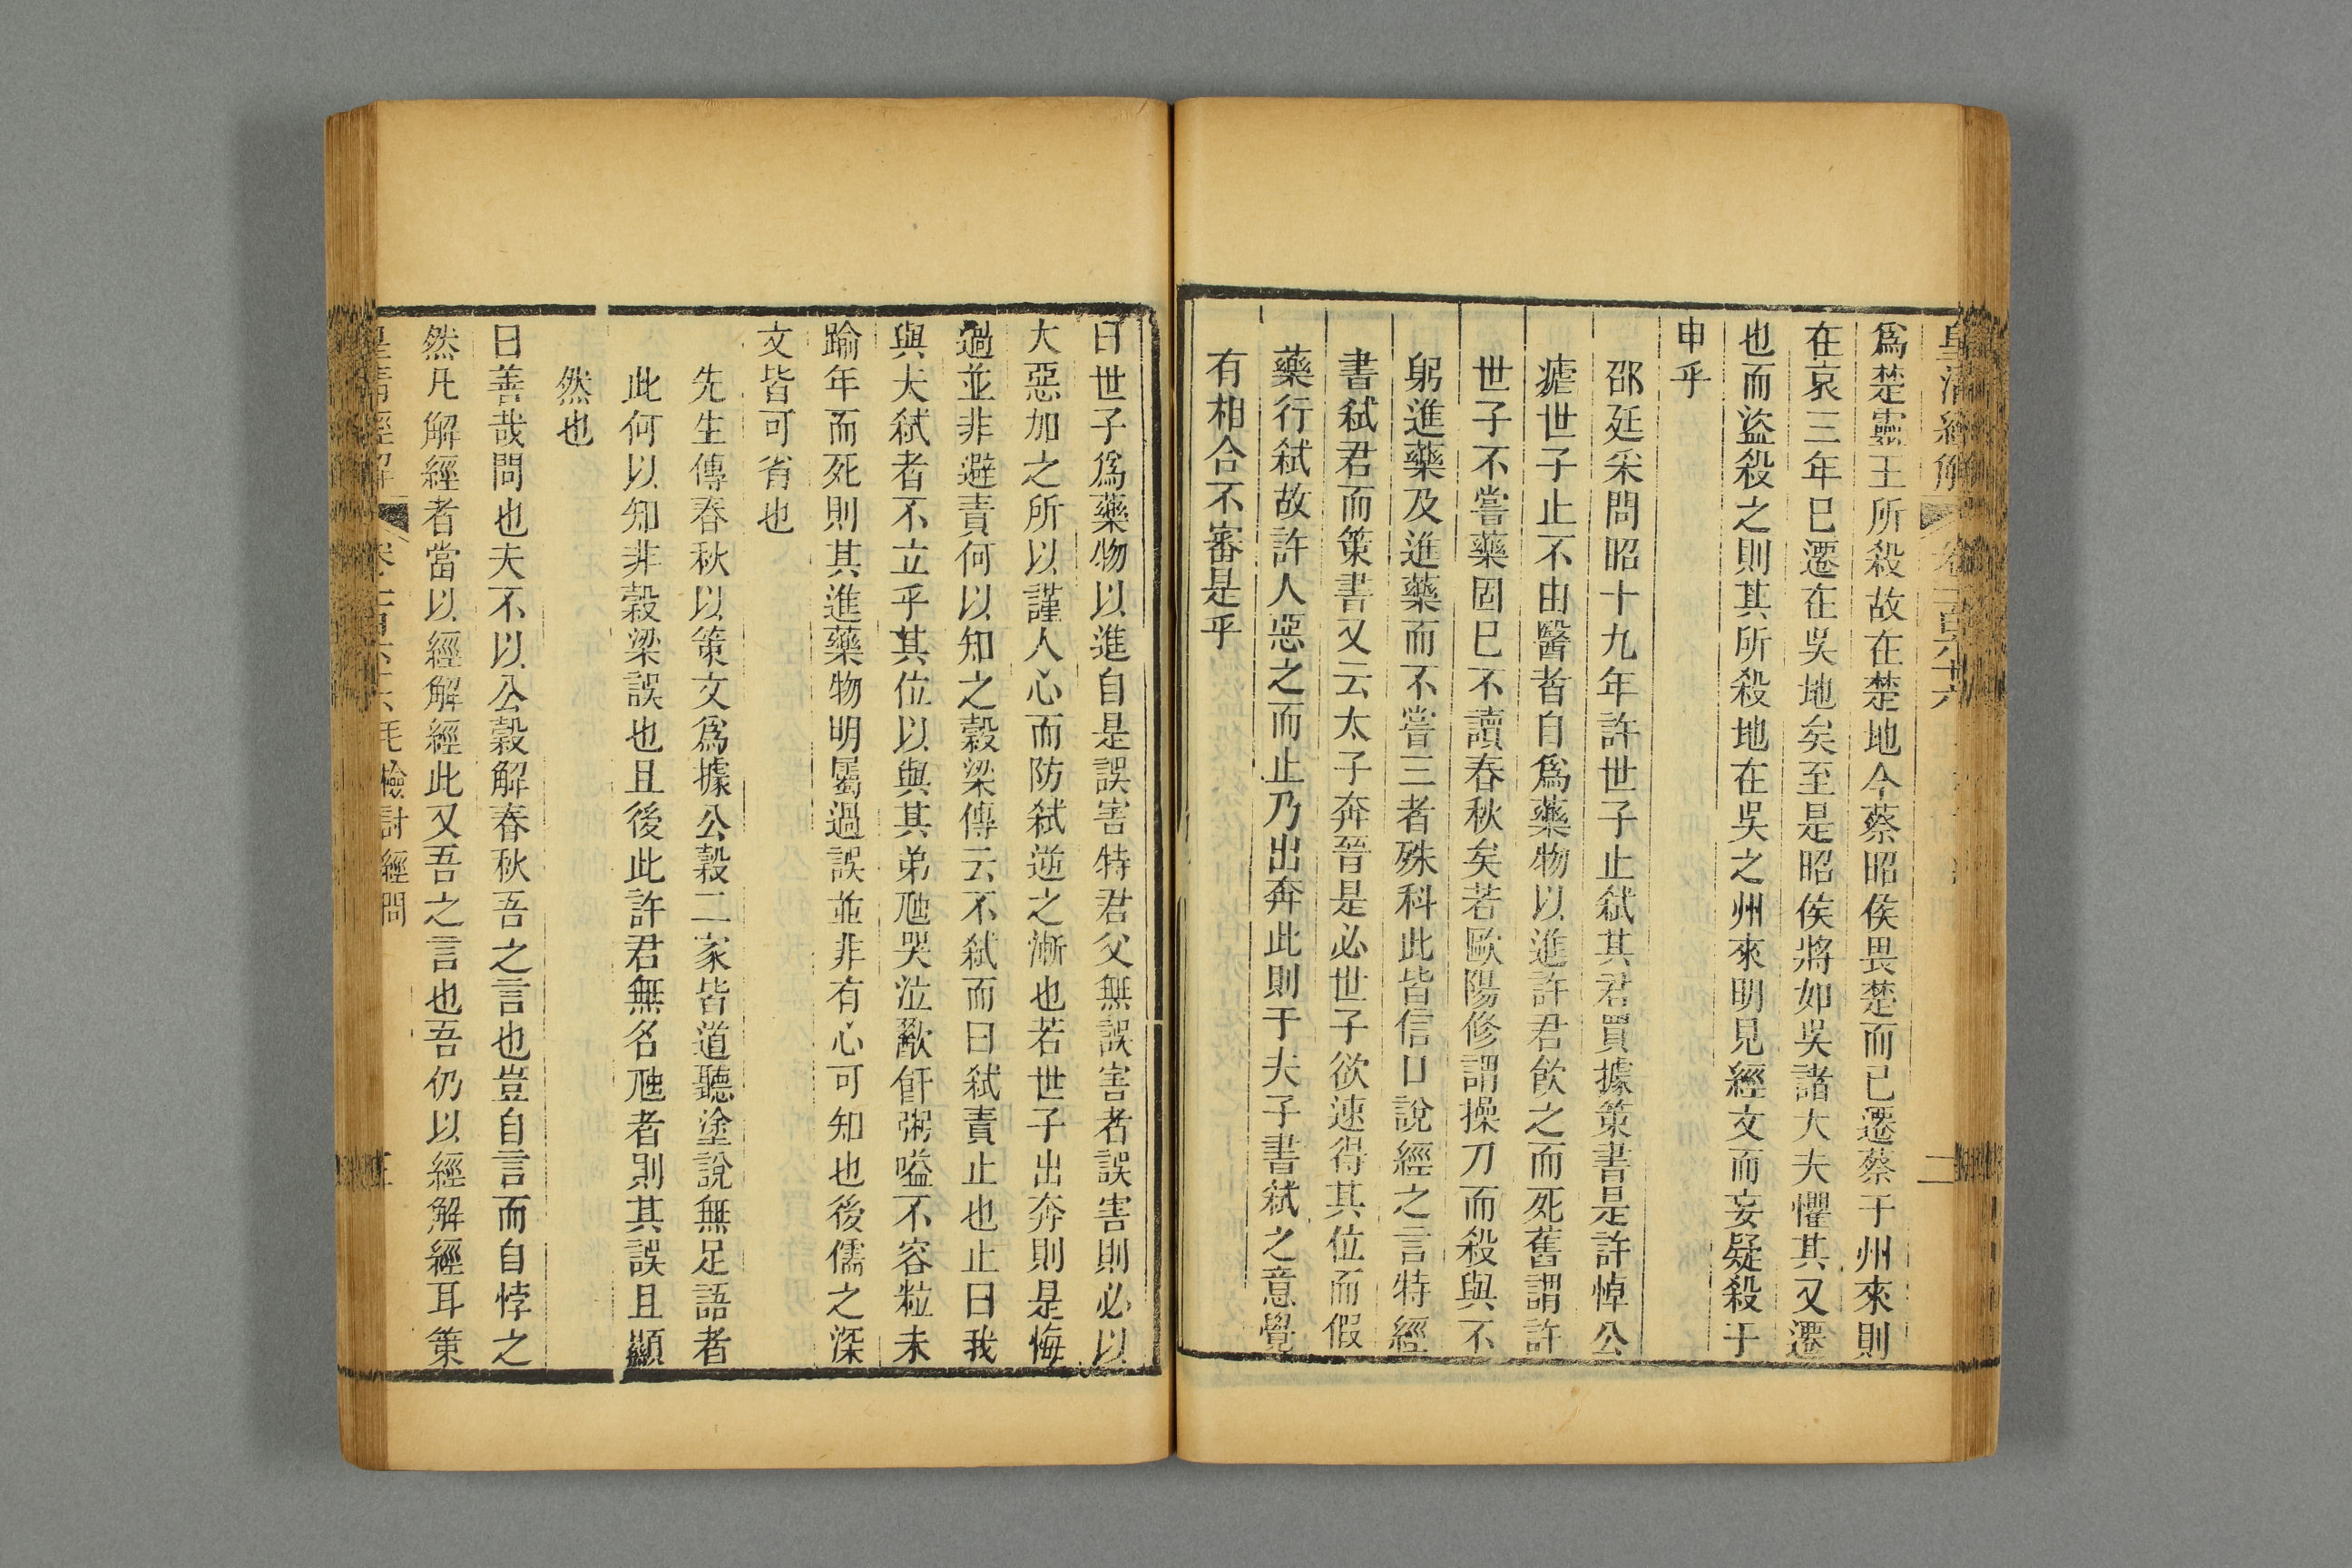 皇清經解 卷一百六十六 二
爲楚靈王所殺故在楚地今蔡昭侯畏楚而已遷蔡于州來則
在哀三年已遷在吳地矣至是昭侯將如吳諸大夫懼其又遷
也而盜殺之則其所殺地在吳之州來明見經文而妄疑殺于
申乎
邵廷采問昭十九年許世子止弒其君買據策書是許悼公
瘧世子止不由醫者自爲藥物以進許君飮之而死舊謂許
世子不嘗藥固已不讀春秋矣若歐陽修謂操刀而殺與不
躬進藥及進藥而不嘗三者殊科此皆信口說經之言特經
書弒君而策書又云太子奔晉是必世子欲速得其位而假
藥行弒故許人惡之而止乃出奔此則于夫子書弒之意覺
有相合不審是乎
曰世子爲藥物以進自是誤害特君父無誤害者誤害則必以
大惡加之所以謹人心而防弒逆之漸也若世子出奔則是悔
過並非避責何以知之穀梁傳云不弒而曰弒責止也止曰我
與夫弒者不立乎其位以與其弟虺哭泣歠飦粥嗌不容粒未
踰年而死則其進藥物明屬過誤並非有心可知也後儒之深
文皆可省也
先生傳春秋以策文爲據公穀二家皆道聽塗說無足語者
此何以知非穀梁誤也且後此許君無名虺者則其誤且顯
然也
曰善哉問也夫不以公穀解春秋吾之言也豈自言而自悖之
然凡解經者當以經解經此又吾之言也吾仍以經解經耳策
皇清經解 毛檢討經問